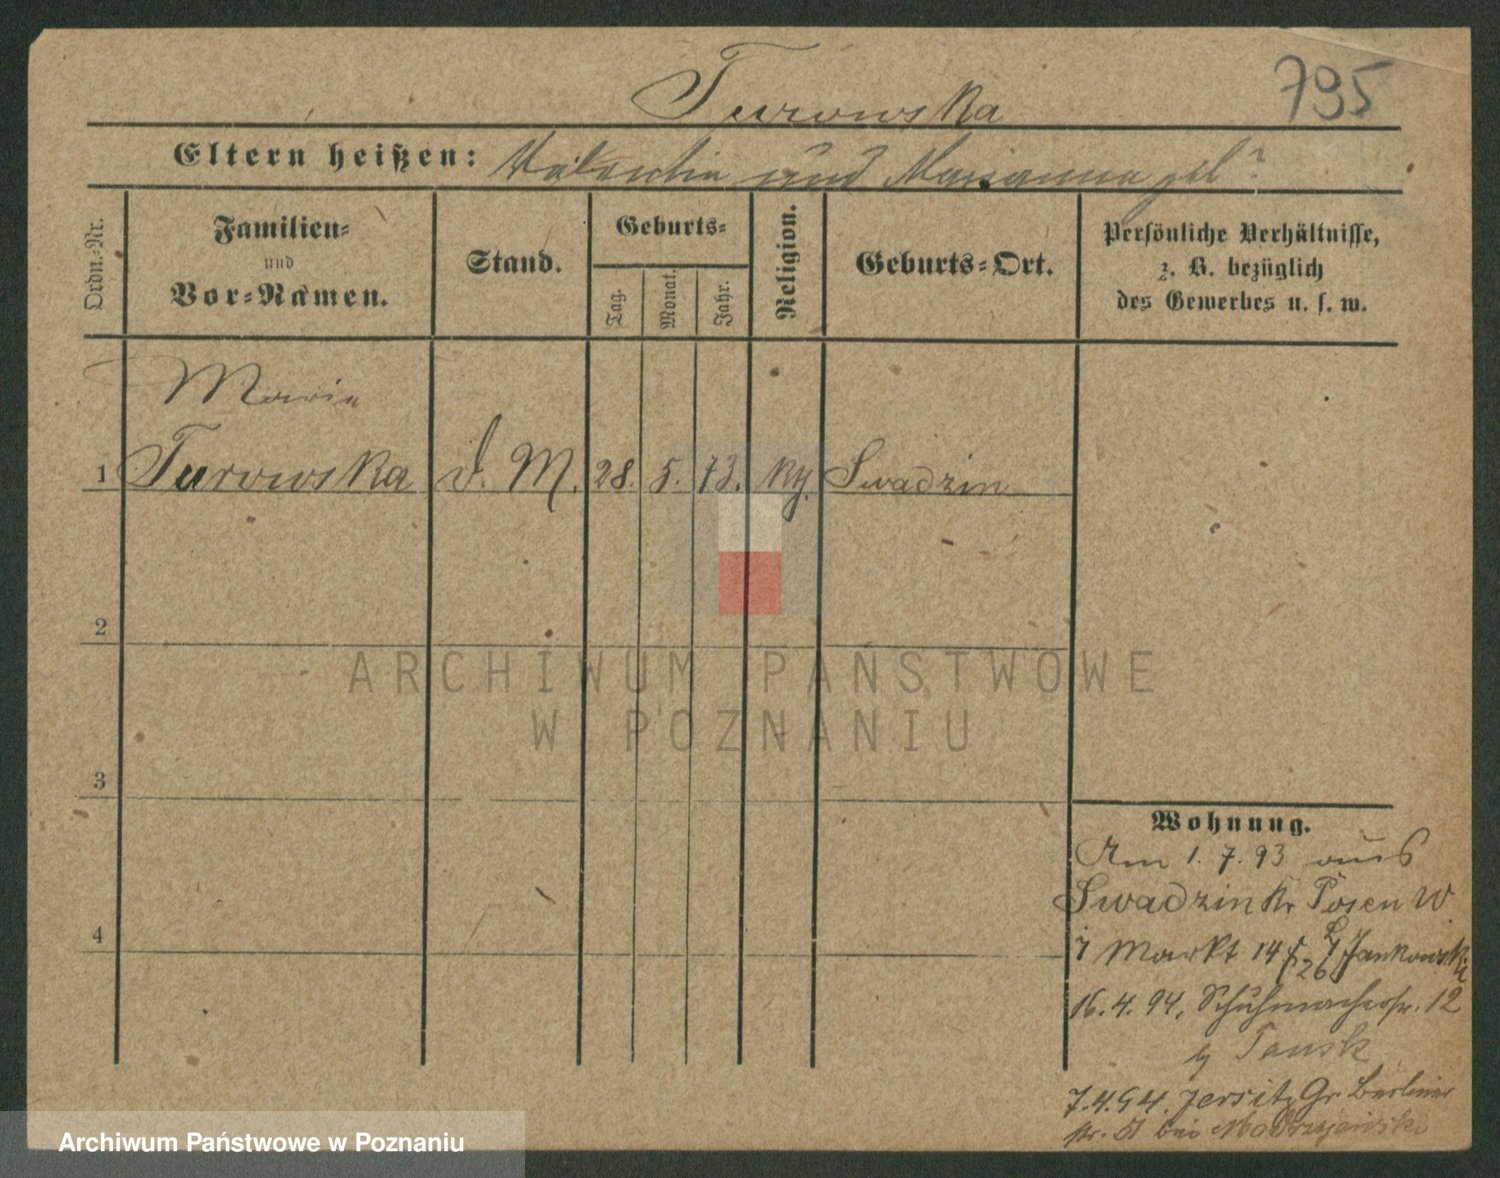 Turowska
795
Eltern heißen: Valentin und Marianna geb ?
Ordn.-Nr.
Familien-
und
Vor-Namen.
Stand.
Geburts-
Tag.
Monat.
Jahr.
Religion.
Geburts-Ort.
Persönliche Verhältnisse,
z. B. bezüglich
des Gewerbes u. s. w.
Marie
1 Turowska d. M. 28. 5. 73. Swadzin
2
3
4
Wohnung.
Am 1. 7. 93 aus
Swadzin Kr Posen W
Markt 14 Jankowski
16. 4. 94, Schuhmacherstr. 12
Tausk
7.4.94. Jersitz Gr. Berliner
str. bei Modrzejewski
ARCHIWUM PAŃSTWOWE
W POZNANIU
Archiwum Państwowe w Poznaniu